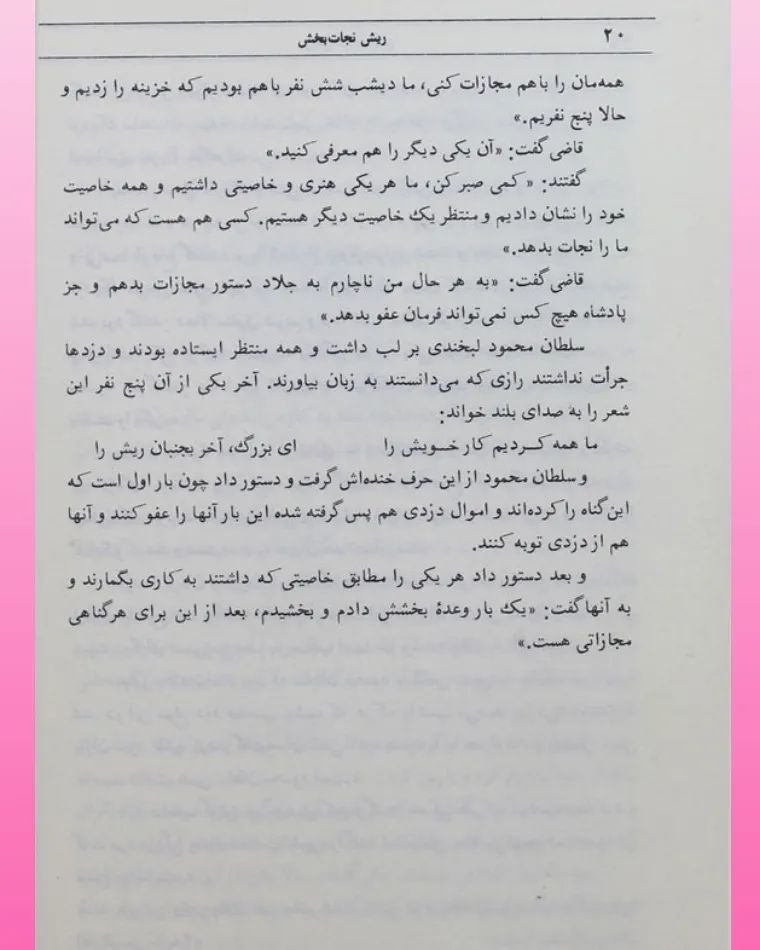 ۲۰ ریش نجات‌بخش
همه‌مان را باهم مجازات کنی، ما دیشب شش نفر باهم بودیم که خزینه را زدیم و
حالا پنج نفریم.»
قاضی گفت: «آن یکی دیگر را هم معرفی کنید.»
گفتند: «کمی صبر کن، ما هر یکی هنری و خاصیتی داشتیم و همه خاصیت
خود را نشان دادیم و منتظر یک خاصیت دیگر هستیم. کسی هم هست که می‌تواند
ما را نجات بدهد.»
قاضی گفت: «به هر حال من ناچارم به جلاد دستور مجازات بدهم و جز
پادشاه هیچ کس نمی‌تواند فرمان عفو بدهد.»
سلطان محمود لبخندی بر لب داشت و همه منتظر ایستاده بودند و دزدها
جرأت نداشتند رازی که می‌دانستند به زبان بیاورند. آخر یکی از آن پنج نفر این
شعر را به صدای بلند خواند:
ما همه کردیم کار خویش را ای بزرگ، آخر بجنبان ریش را
و سلطان محمود از این حرف خنده‌اش گرفت و دستور داد چون بار اول است که
این گناه را کرده‌اند و اموال دزدی هم پس گرفته شده این بار آنها را عفو کنند و آنها
هم از دزدی توبه کنند.
و بعد دستور داد هر یکی را مطابق خاصیتی که داشتند به کاری بگمارند و
به آنها گفت: «یک بار وعدهٔ بخشش دادم و بخشیدم، بعد از این برای هر گناهی
مجازاتی هست.»